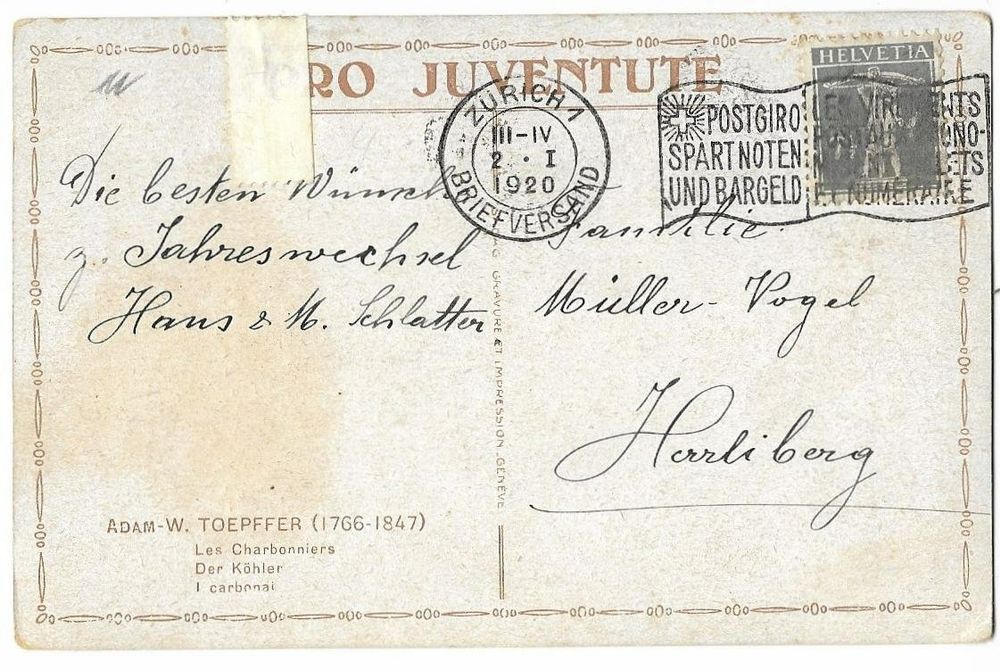 PRO JUVENTUTE
HELVETIA
ZÜRICH 1
III-IV
2. I
1920
BRIEFVERSAND
POSTGIRO
SPART NOTEN
UND BARGELD
LES VIREMENTS
ET NUMERAIRE
Die besten Wünsche
z. Jahreswechsel
Hans & M. Schlatter
Familie
Müller-Vogel
Herliberg
GRAVURE ET IMPRESSION, GENÈVE
ADAM-W. TOEPFFER (1766-1847)
Les Charbonniers
Der Köhler
I carbonai